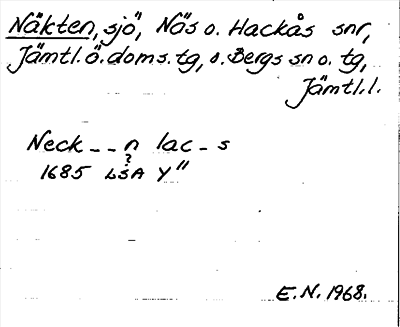 Näkten, sjö, Näs o. Hackås snr,
Jämtl. Ö. doms. tg, o. Bergs sn o. tg,
Jämtl. l.
Neck _ _ n lac _ s
?
1685 LSA Y"
E.N. 1968.